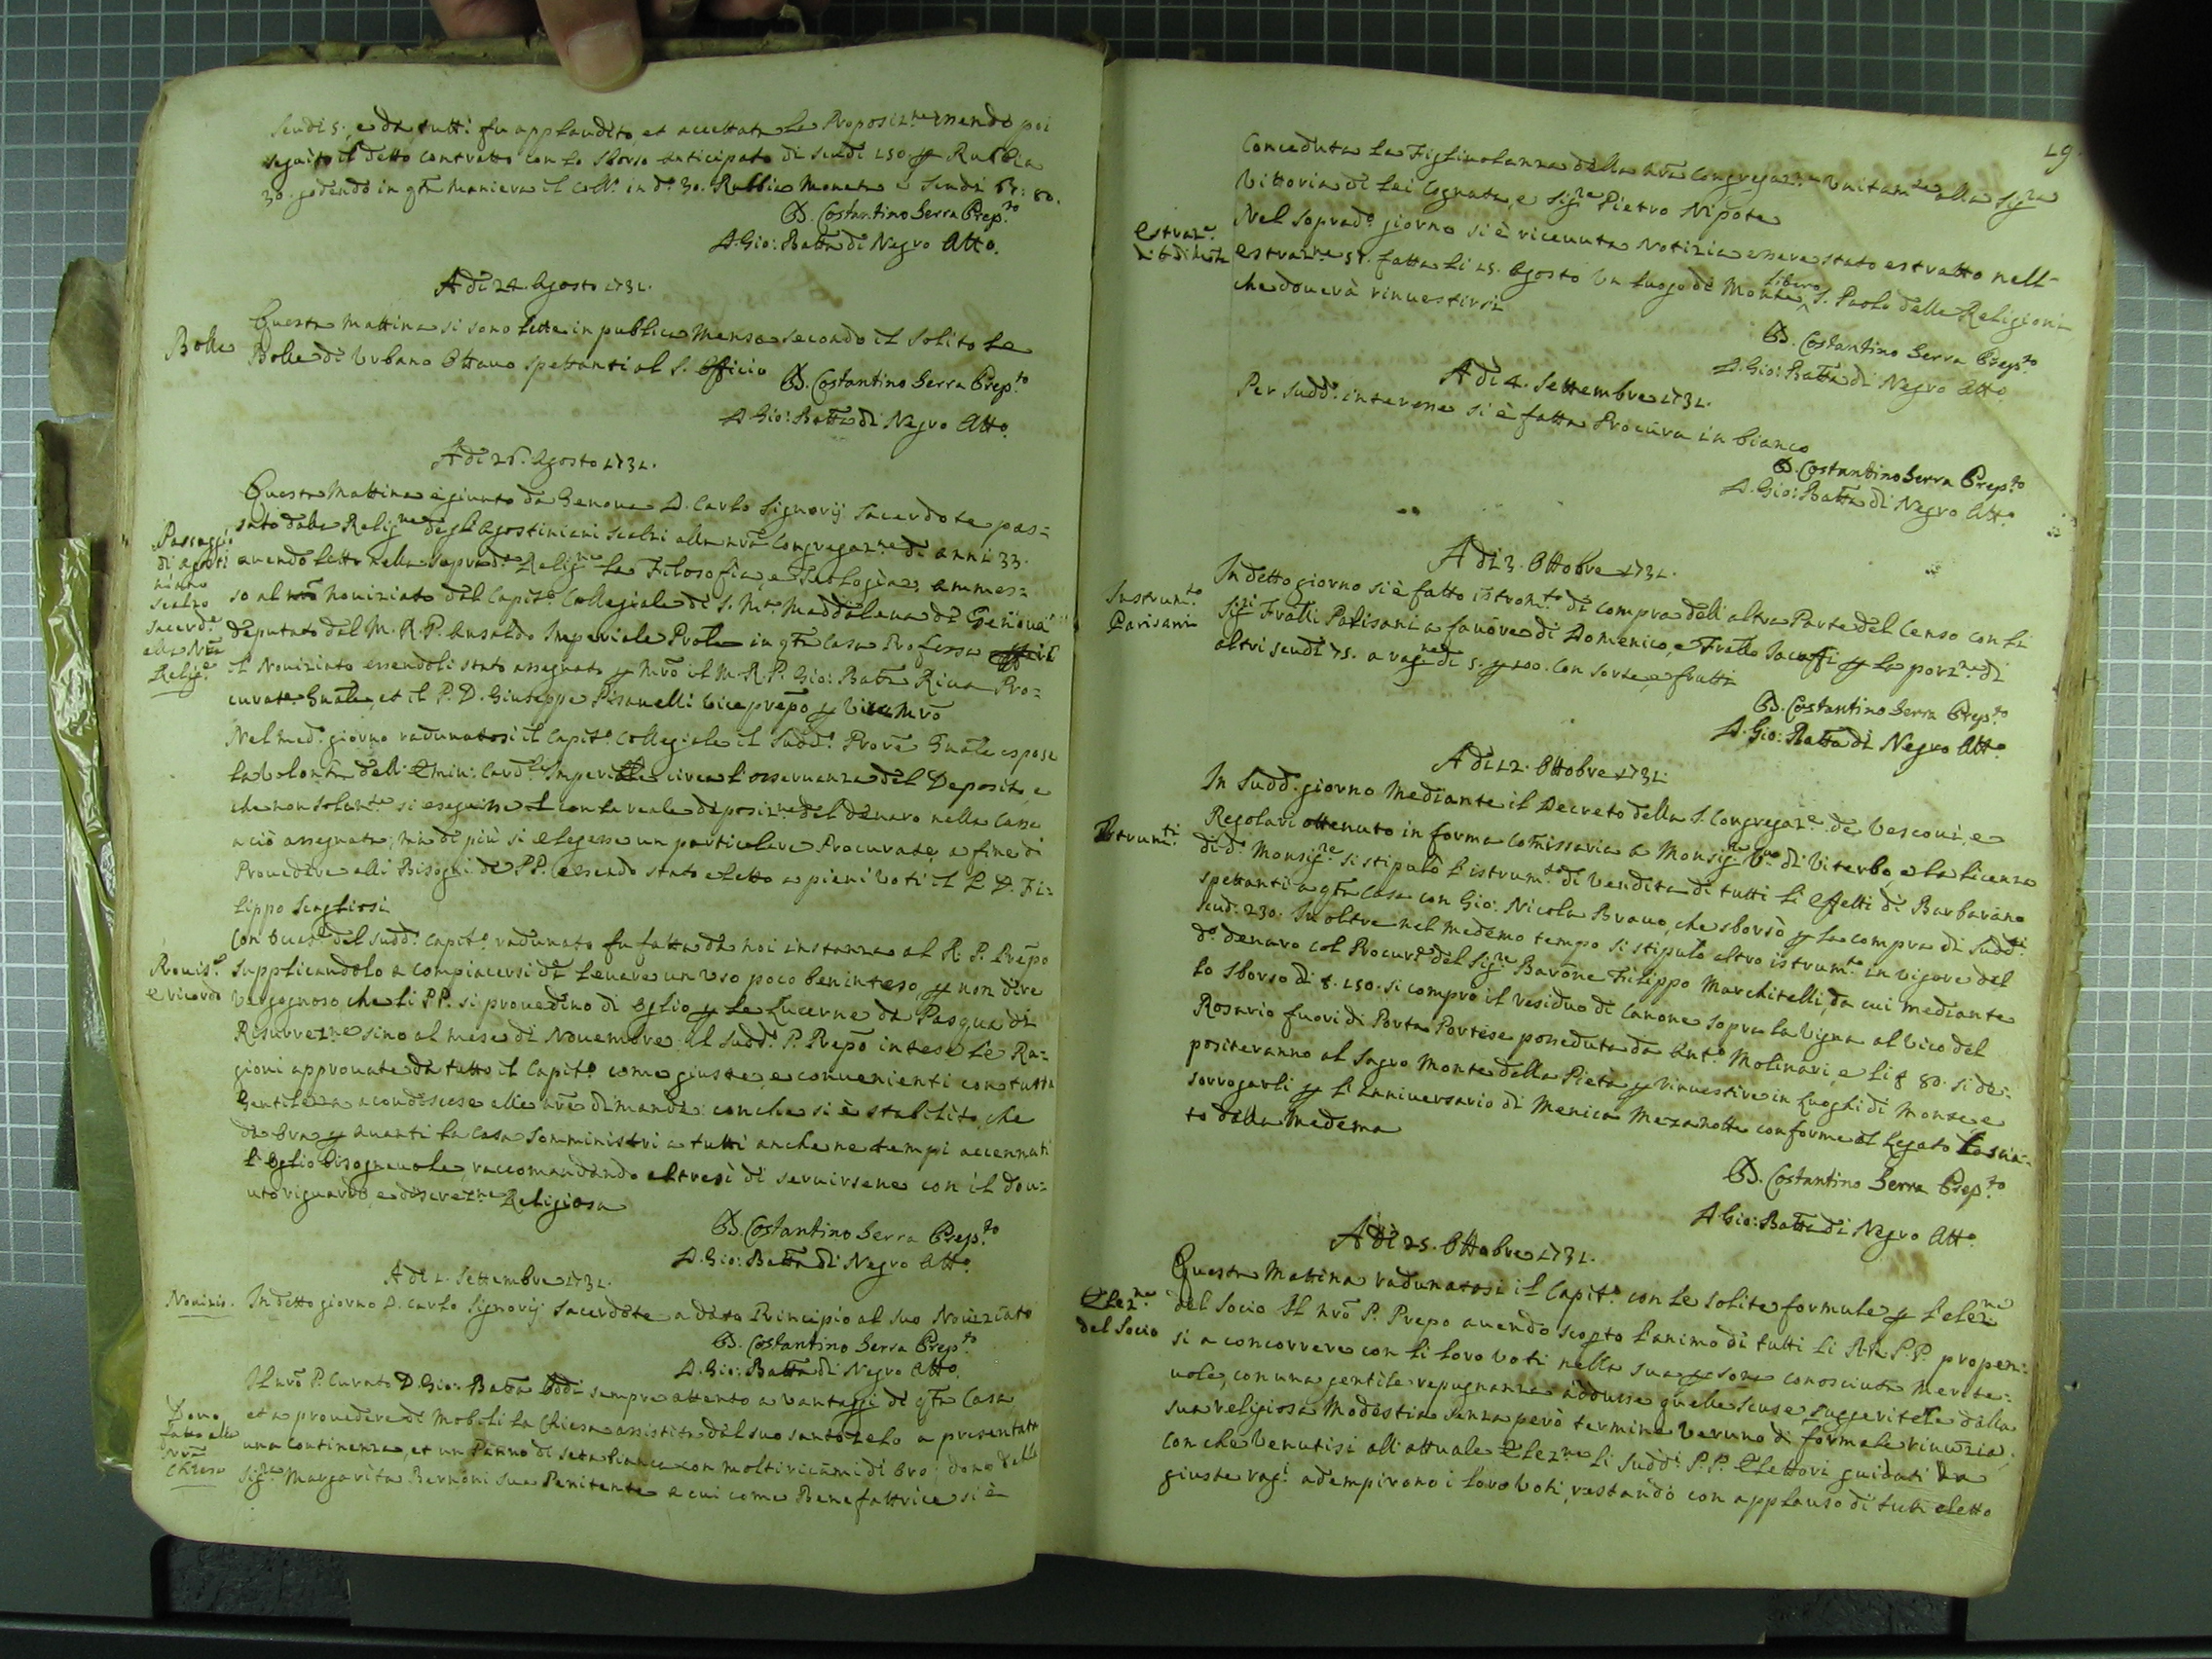 scudi 5., e da tutti fu applaudito, et accettata la Proposiz.ne essendo poi
seguito il detto contratto con lo sborso anticipato di scudi 150. p Rubbia
30. godendo in qta maniera il Coll.o in d.e 30. Rubbia Moneta e scudi 80.
D. Costantino Serra Prep.to
D. Gio: Batta di Negro Att.o
A dì 24. Agosto 1731.
Bolle
Questa Mattina si sono lette in publica Mensa secondo il solito le
Bolle di Urbano Ottavo spettanti al S. Officio
D. Costantino Serra Prep.to
D. Gio: Batta di Negro Att.o
A dì 26. Agosto 1731.
Passaggio
di agosti
niano
scalzo
sacerd.e
alla Nra
Relig.e
Questa Mattina è giunto da Genova D. Carlo Signorij Sacerdote pas=
sato dalla Relig.ne degli Agostiniani Scalzi alla nra Congregaz.ne di anni 33.
avendo letto nella soprad.a Relig.ne la Filosofia, e Teologia, ammes=
so al Noviziato dal Capit.o Collegiale di S. M.a Maddalena di Genova
deputato dal M. R. P. Ansaldo Imperiale Prole in qta Casa Professa
il Noviziato essendoli stato assegnato p Mro il M. R. P. Gio: Batta Riva Pro=
curat.e Gnale, et il P. D. Giuseppe Pisanelli Viceprepo p Vice Mro
Nel med.o giorno radunatosi il Capit.o Collegiale il Sudd.o Prore Gnale espose
la volontà dell'Emin: Card.le Imperiale circa l'osservanza del Deposito, e
che non solam.te si eseguisse con la reale deposiz.ne del denaro nella Cassa
a ciò assegnata; ma di più si elegesse un particolare Procurate a fine di
Provedere alli Bisogni de PP. essendo stato eletto a pieni Voti il P. D. Fi=
lippo Scagliosi
Provis.e
e ricordo
Con del sudd.o Capit.o radunato fu fatta da noi instanza al R. P. Prepo
supplicandolo a compiacersi di levare un uso poco beninteso, p non dire
Vergognoso, che li PP. si provedino di Oglio p le Lucerne da Pasqua di
Risurrez.ne sino al mese di Novembre: il Sudd.o P. Prepo intese le Ra=
gioni approvate da tutto il Capit.o come giuste, e convenienti con tutta
Gentilezza acondiscese alle nre dimande: con che si è stabilito, che
da ora p avanti la Casa somministri a tutti anche ne tempi accennati
l'Oglio bisognevole, raccomandando altresì di servirsene con il dov=
uto riguardo, e discrez.ne Religiosa
D. Costantino Serra Prep.to
D. Gio: Batta di Negro Att.o
A dì 1. Settembre 1731.
Novizio.
In detto giorno D. Carlo Signorij Sacerdote a dato Principio al suo Noviziato
D. Costantino Serra Prep.to
D. Gio: Batta di Negro Att.o
Dono
fatto alla
nra
Chiesa
Il nro P. Curato D. Gio: Batta Oddi sempre attento a vantaggi di qta Casa
et a provedere di Mobili la Chiesa assistita dal suo santo zelo a presentata
una continenza, et un Panno di seta bianca con molti ricami di Oro: dono della
Sig.ra Margarita Bernoni sua Penitente a cui come Benefattrice si è
19.
Conceduta la Figliuolanza della nra Congregaz.ne Unitam.te alla Sig.ra
Vittoria di lei Cognata, e Sig.re Pietro Nipote
Estraz.e
Nel soprad.o giorno si è ricevuta Notizia essere stato estratto nell-
Estraz.ne 51. fatta li 25. Agosto un Luogo di Monte Libero S. Paolo delle Religioni
che doverà rinvestirsi
D. Costantino Serra Prep.to
D. Gio: Batta di Negro Att.o
A dì 4. Settembre 1731.
Per sudd.o interesse si è fatta Procura in bianco
D. Costantino Serra Prep.to
D. Gio: Batta di Negro Att.o
A dì 3. Ottobre 1731.
Instrum.to
Parisani
In detto giorno si è fatto istrom.to di compra dell'altra Parte del Censo con li
Sig.ri Fratelli Parisani a favore di Domenico, e Fratello Sacoffi p la porz.ne di
altri scudi 75. a rag.ne di 5. p 100. con sorte, e frutti
D. Costantino Serra Prep.to
D. Gio: Batta di Negro Att.o
A dì 12. Ottobre 1731.
Istrum.ti
In Sudd.o giorno Mediante il Decreto della S. Congregaz.e de Vescovi, e
Regolari ottenuto in forma Comissaria a Monsig.re V.o di Viterbo, e la licenza
di d.o Monsig.re si stipulò l'istrum.to di Vendita di tutti li Effetti di Barbarano
spettanti a qta Casa con Gio: Nicola Bravo, che sborsò p la compra di Sudd.i
scud. 230. In oltre nel medemo tempo si stipulò altro istrum.to in vigore del
d.o denaro col Procur.e del Sig.re Barone Filippo Marchitelli, da cui mediante
lo sborso di 150. si comprò il residuo di Canone sopra la Vigna al Vico del
Rosario fuori di Porta Portese posseduta da Ant.o Molinari, e li 80. si de=
positeranno al Sagro Monte della Pietà p rinvestire in Luoghi di Monte, e
sorrogarli p l'anniversario di Menica Mezanotte conforme al Legato Lascia=
to dalla Medema
D. Costantino Serra Prep.to
D. Gio: Batta di Negro Att.o
A dì 25. Ottobre 1731.
Elez.ne
del Socio
Questa Mattina radunatosi il Capit.o con le solite formule p l'elez.ne
del Socio Il nro P. Prepo avendo scopto l'animo di tutti li RR. P.P. propen=
si a concorrere con li loro Voti nella sua psona conosciuta Merite=
vole, con una gentile repugnanza addusse quelle scuse suggeritele dalla
sua religiosa Modestia senza però termine veruno di formale rinuzia,
con che Venutisi all'attuale Elez.ne li Sudd.i P.P. Elettori guidati da
giuste rag.i adempirono i loro Voti, restando con applauso di tutti eletto